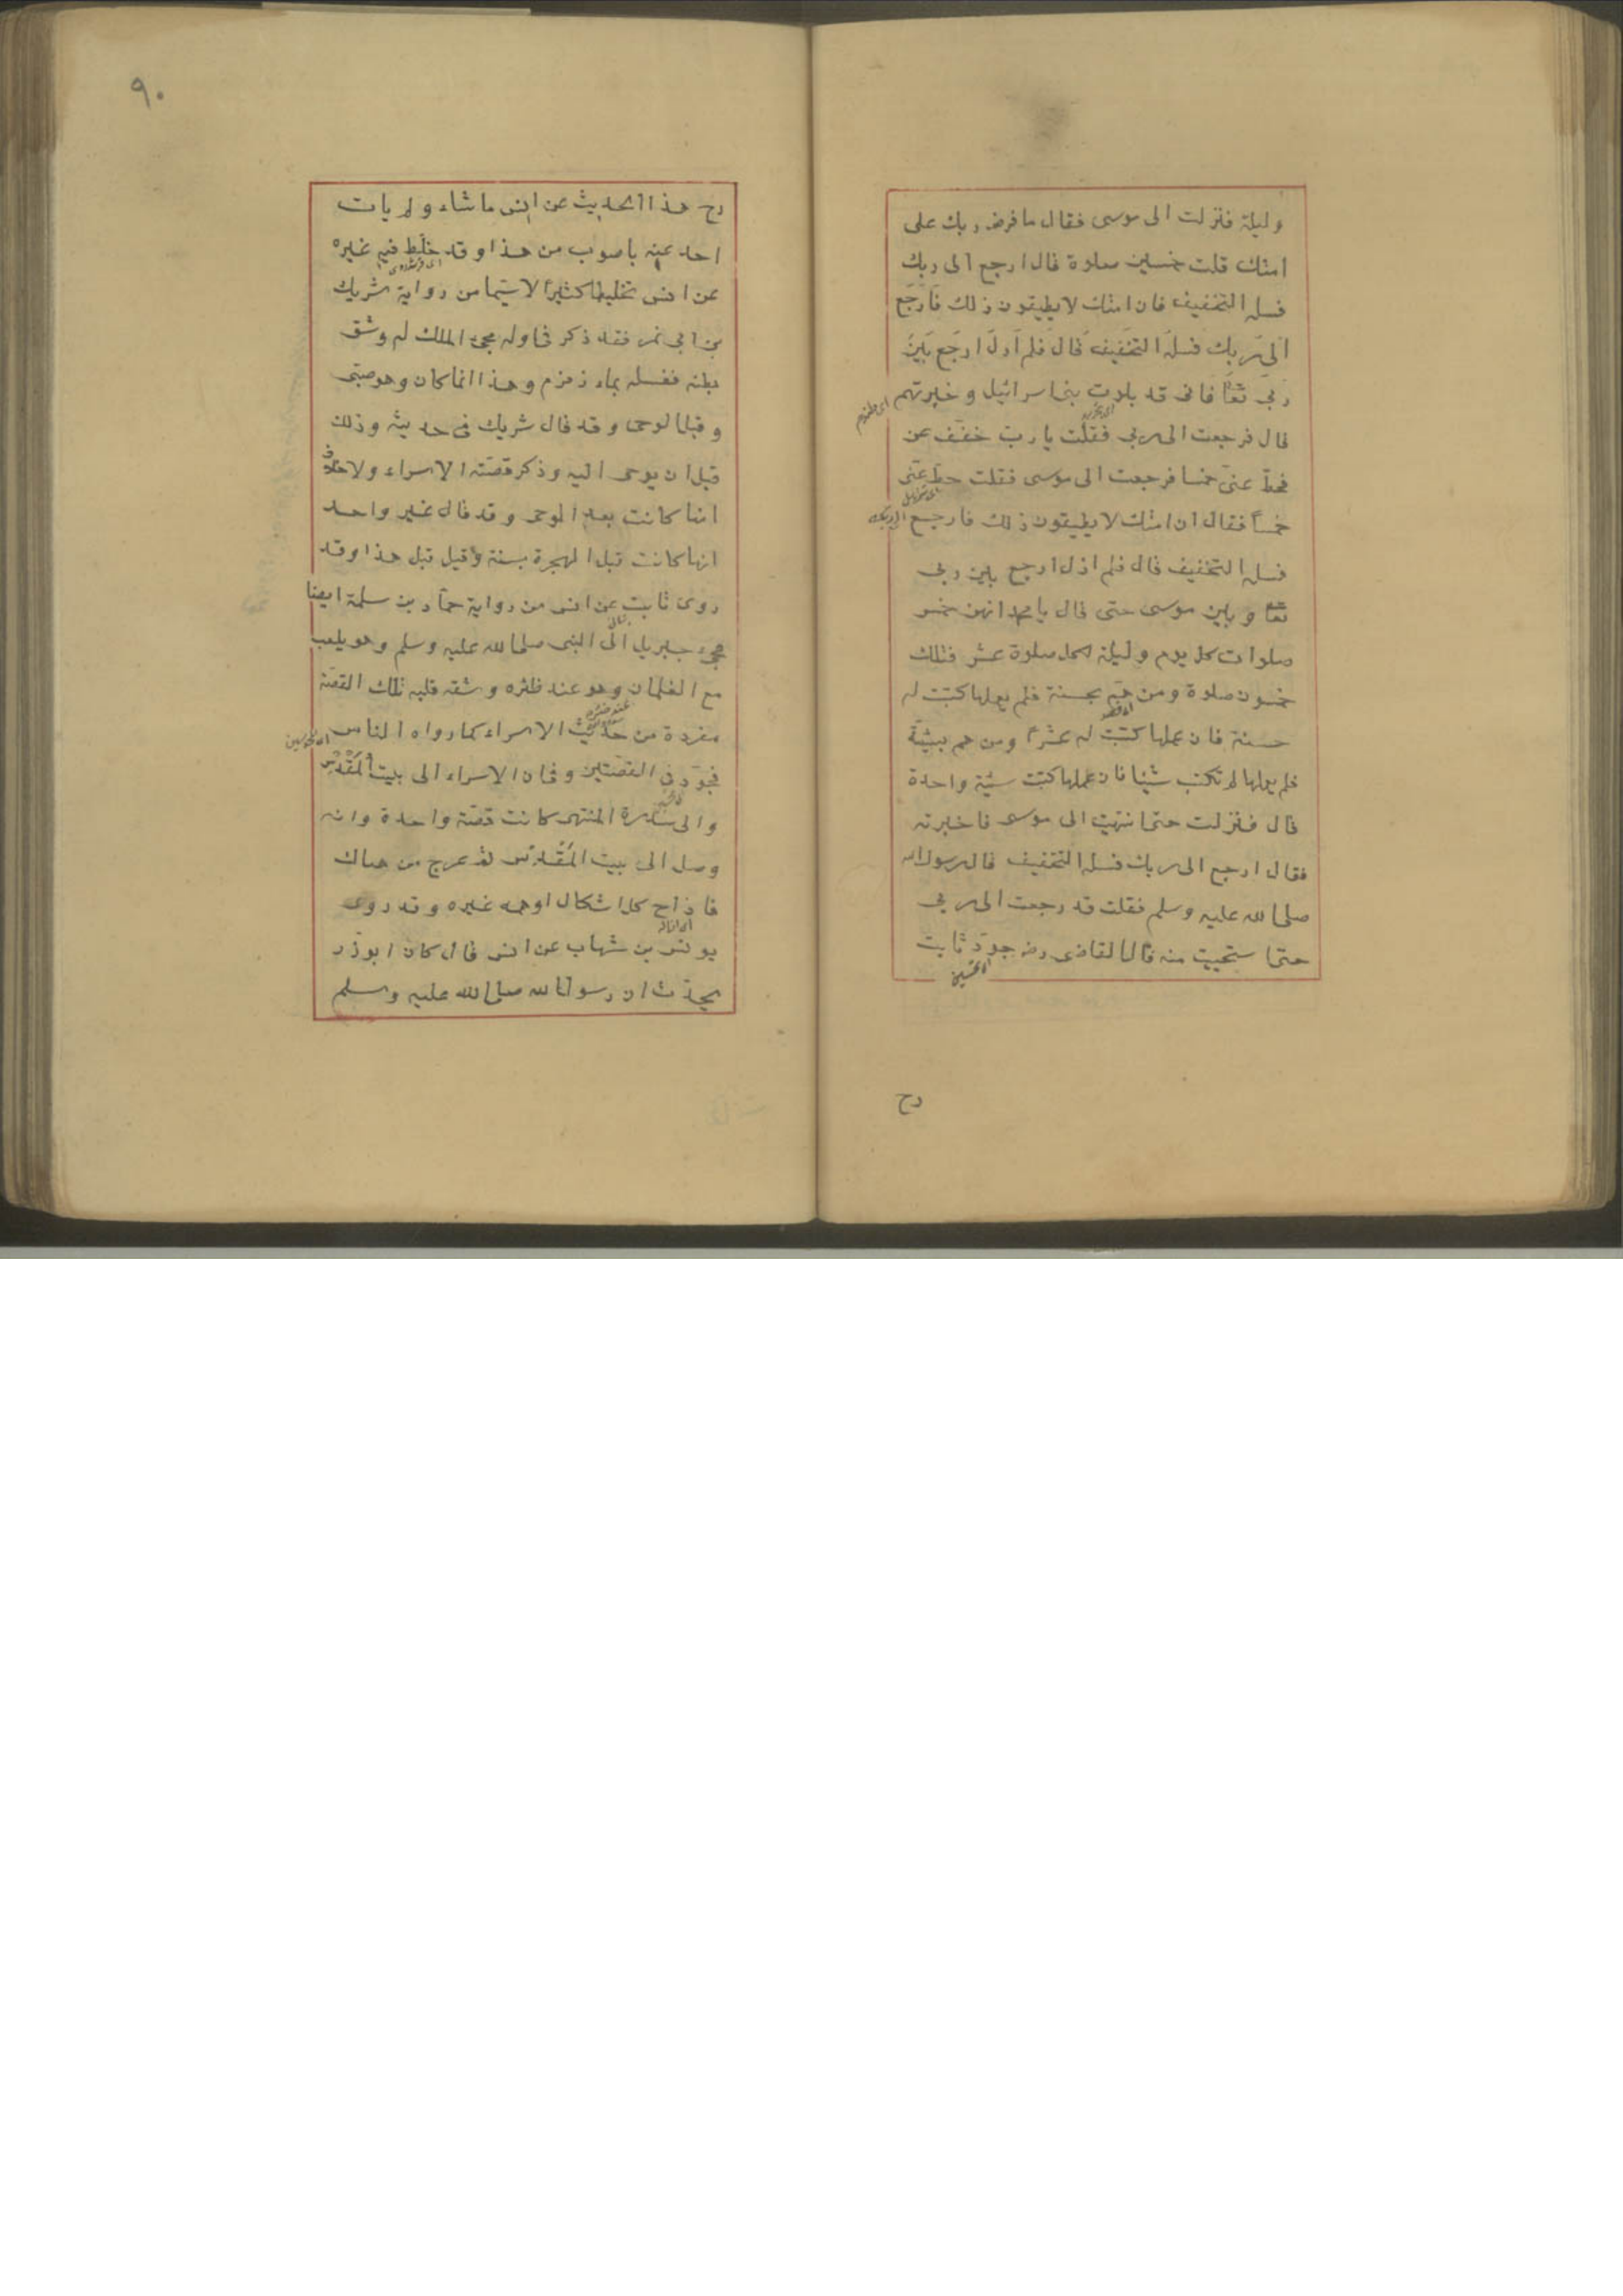 وليلة فنزلت الى موسى فقال ما فرض ربك على
امتك قلت خمسين صلاوة قال ارجع الى ربك
فسله التخفيف فان امتك لا يطيقون ذلك فارجع
الى ربك فسله التخفيف قال فلم ازل ارجع بين
ربى تعا فانى قد بلوت بنى اسرائيل وخبرتهم
قال فرجعت الى ربى فقلت يا رب خفف عن
فحط عنى خمسا فرجعت الى موسى فقلت حط عنى
خمسا فقال ان امتك لا يطيقون ذلك فارجع الى ربك
فسله التخفيف قال فلم ازل ارجع بين ربى
تعا وبين موسى حتى قال يا محمد انهن خمس
صلوات كل يوم وليلة لكل صلوة عشر فتلك
خمسون صلاوة ومن هم بحسنة فلم يعملها كتبت له
حسنة فان عملها كتبت له عشرا ومن هم بسيئة
فلم يعملها لم تكتب شيئا فان عملها كتبت سيئة واحدة
قال فنزلت حتى انتهيت الى موسى فاخبرته
فقال ارجع الى ربك فسله التخفيف قال رسول الله
صلى الله عليه وسلم فقلت قد رجعت الى ربى
حتى استحييت منه قال القاضى رضه جود ثابت
دح
٩٠
دح هذا الحديث عن انس ما شاء ولم يات
احد عنه باصوب من هذا وقد خلط فيه غيره
عن انس تخليطا كثيرا لا سيما من رواية شريك
بن ابى نمر فقد ذكر فى اوله مجئ الملك له وشق
بطنه فغسله بماء زمزم وهذا انما كان وهو صبى
وقبل الوحى وقد قال شريك فى حديثه وذلك
قبل ان يوحى اليه وذكر قصة الاسراء ولا خلاف
انها كانت بعد الوحى وقد قال غير واحد
انها كانت قبل الهجرة بسنة وقيل قبل هذا وقد
روى ثابت عن انس من رواية حماد بن سلمة ايضا
مجئ جبريل الى النبى صلى الله عليه وسلم وهو يلعب
مع الغلمان وهو عند ظئره وشقه قلبه تلك القصة
مفردة من حديث الاسراء كما رواه الناس
فجود فى القصتين وفى ان الاسراء الى بيت المقدس
والى سدرة المنتهى كانت قصة واحدة وانه
وصل الى بيت المقدس ثم عرج من هناك
فازاح كل اشكال اوهمه غيره وقد روى
يونس بن شهاب عن انس قال كان ابو ذر
يحدث ان رسول الله صلى الله عليه وسلم